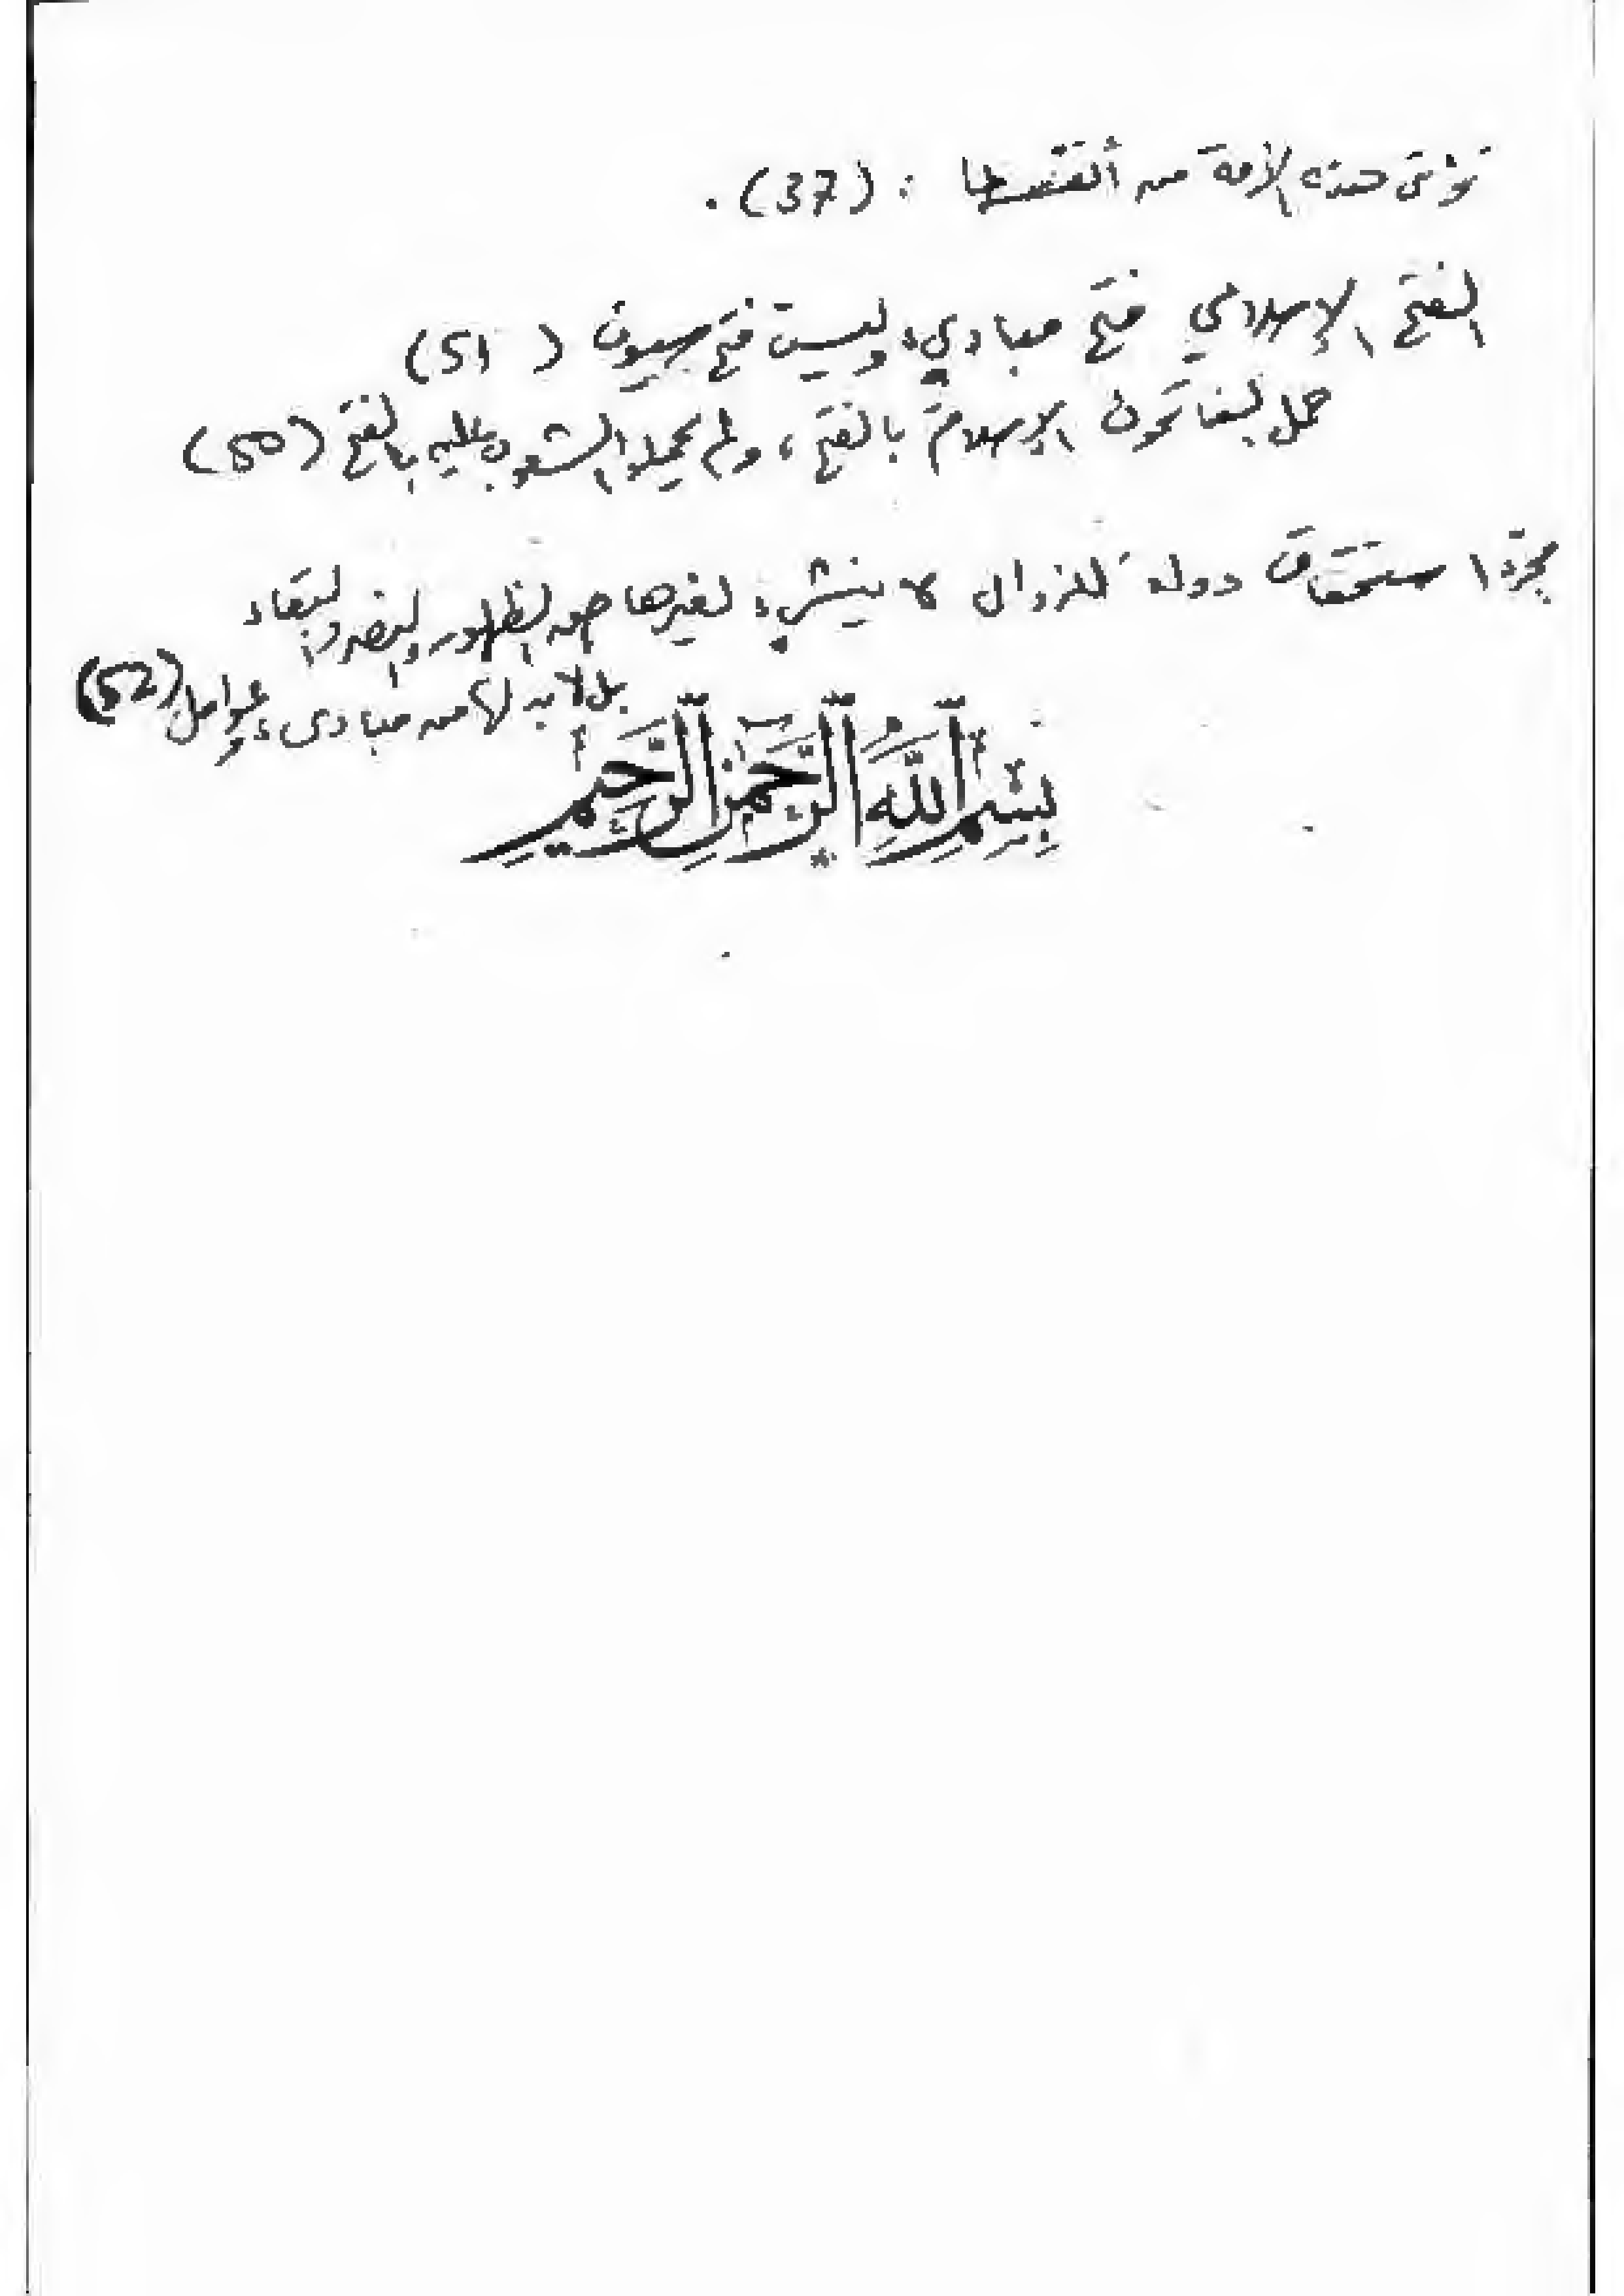 تؤتى هذه الأمة من أنفسها . (37) .
الفتح الإسلامي فتح مبادئ، وليست فتح سيوف (51)
حمل الفاتحون الإسلام بالفتح، ولم يحملوا الشعوب عليه بالفتح (50)
مجرّد استحقاق دولة للزوال لا ينشىء لغيرها حق الظهور والنصر والبقاء
بل لابد لها من مبادىء وعوامل (52)
بِسْمِ اللَّهِ الرَّحْمَٰنِ الرَّحِيمِ